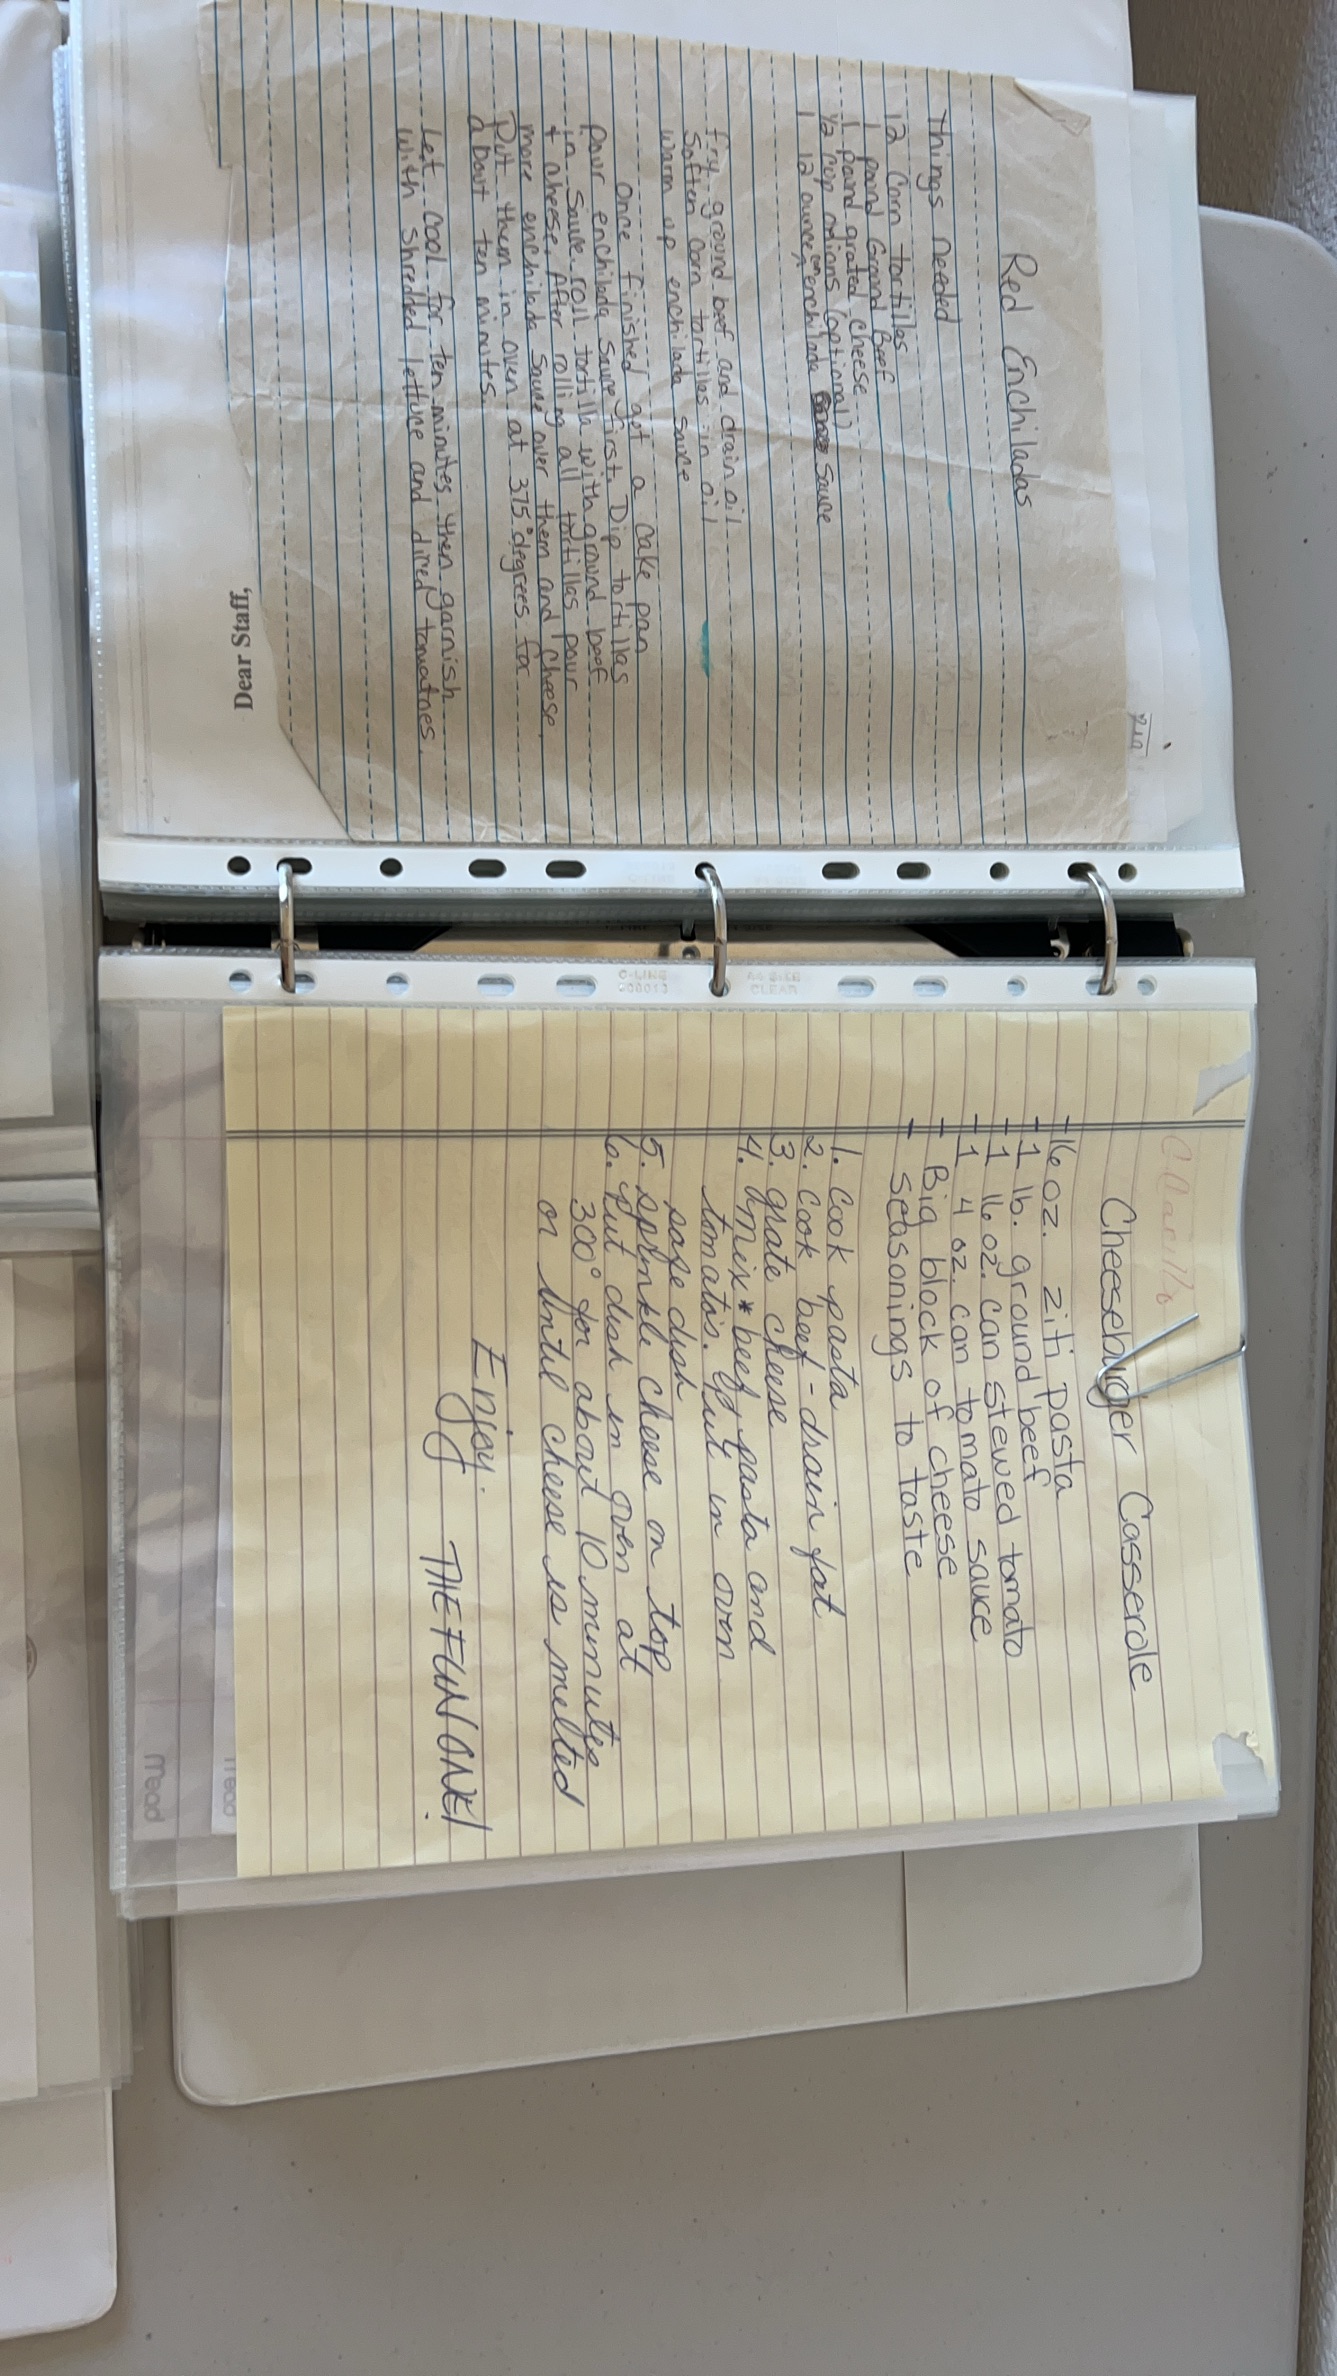 Red Enchiladas
Things needed
12 Corn tortillas
1 pound Ground Beef
1 pound grated cheese
1/2 cup onions (optional)
1 12 ounce can enchilada Sauce
fry ground beef and drain oil
Soften corn tortillas in oil
warm up enchilada sauce
Once finished get a cake pan
pour enchilada sauce first. Dip tortillas
in sauce roll tortilla with ground beef
+ cheese. After rolling all tortillas pour
more enchilada sauce over them and cheese.
Put them in oven at 375° degrees for
about ten minutes.
Let cool for ten minutes then garnish
with shredded lettuce and diced tomatoes.
Dear Staff,
C-LINE
AS SIZE
CLEAR
Cheeseburger Casserole
- 16 oz. ziti pasta
- 1 lb. ground beef
- 1 16 oz. can stewed tomato
- 1 4 oz. can tomato sauce
- Big block of cheese
- seasonings to taste
1. Cook pasta
2. Cook beef - drain fat
3. grate cheese
4. mix * beef, pasta and
tomato's. Put in oven
safe dish
5. sprinkle cheese on top
6. Put dish in oven at
300° for about 10 minutes
or until cheese is melted
Enjoy.
THE FUN ONE!
mead
mead